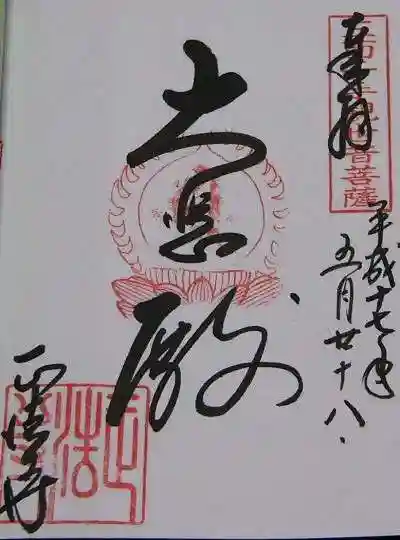 奉拝
音菩薩
平成十七年
五月廿十八、
大悲殿
正法寺